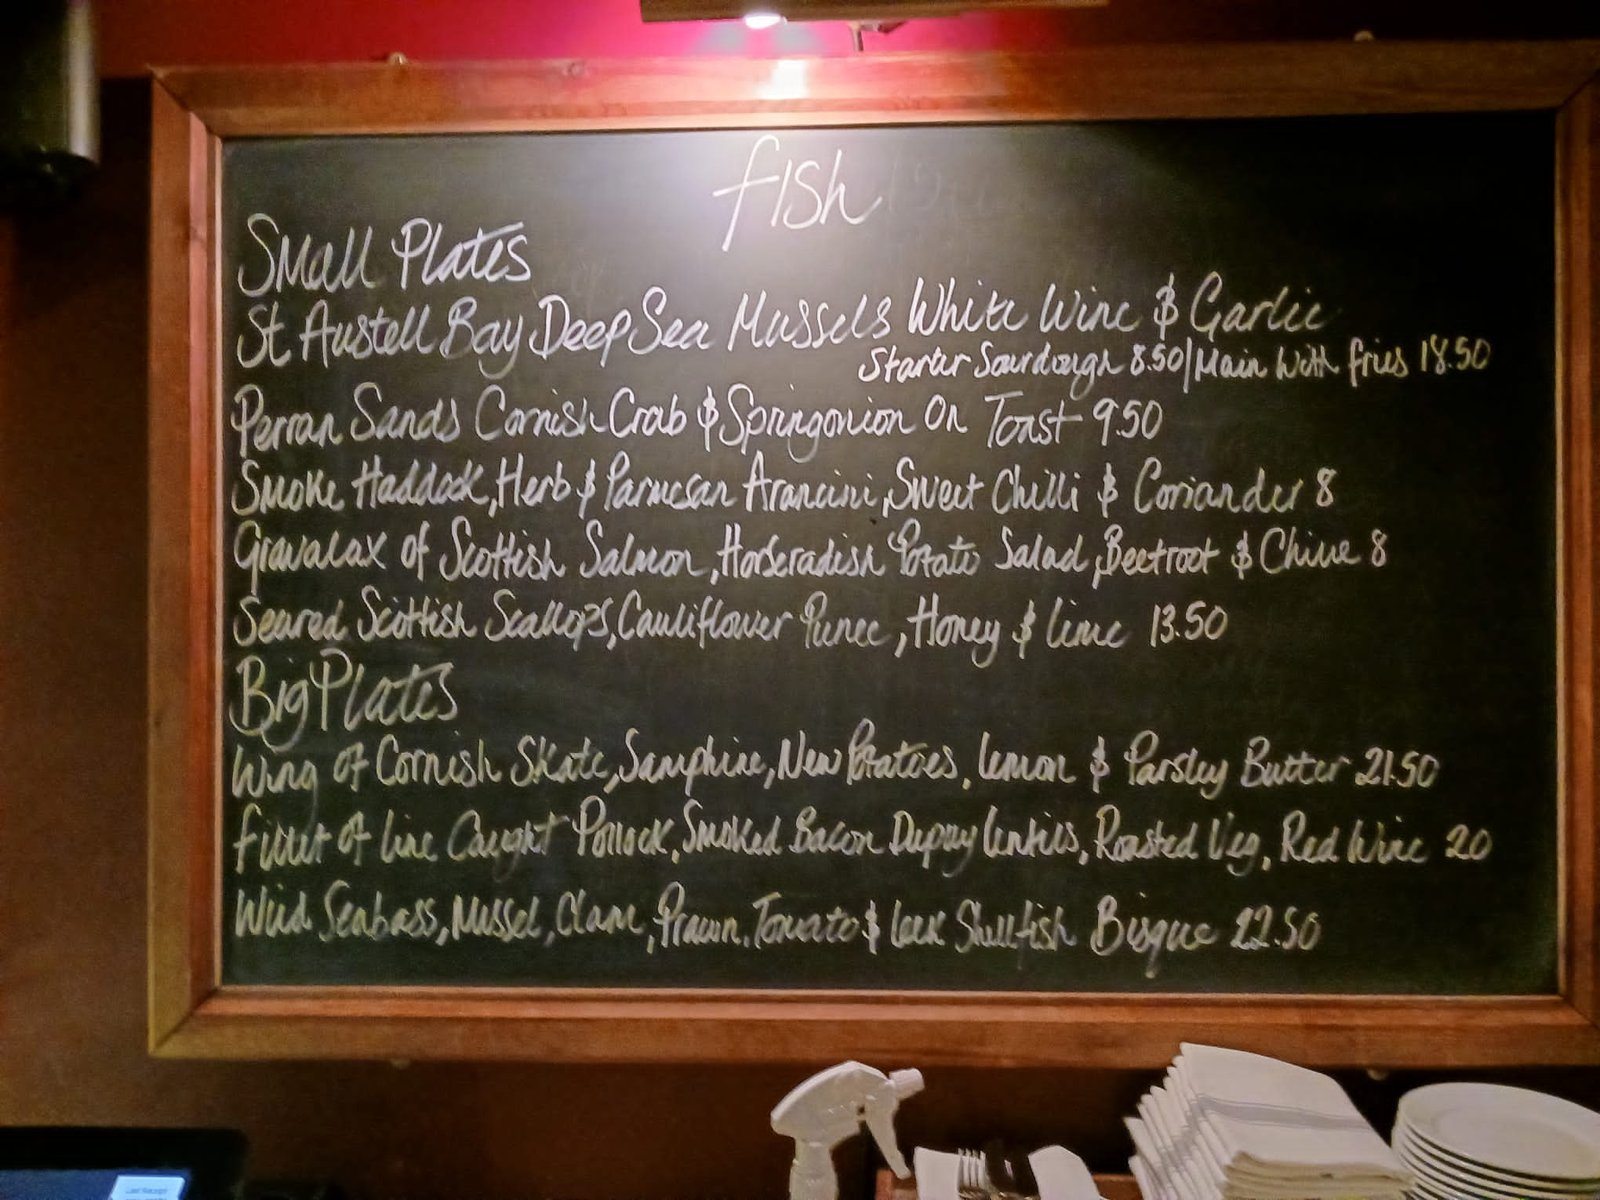 fish
Small Plates
St Austell Bay Deep Sea Mussels White Wine & Garlic
Starter Sourdough 8.50/Main With fries 18.50
Perran Sands Cornish Crab & Springonion On Toast 9.50
Smoke Haddock, Herb & Parmesan Arancini, Sweet Chilli & Coriander 8
Gravalax of Scottish Salmon, Horseradish Potato Salad, Beetroot & Chive 8
Seared Scottish Scallops, Cauliflower Puree, Honey & lime 13.50
Big Plates
Wing of Cornish Skate, Samphire, New Potatoes, lemon & Parsley Butter 21.50
fillet of line Caught Pollock, Smoked Bacon Dupuy lentils, Roasted Veg, Red Wine 20
Wild Seabass, Mussel, Clam, Prawn, Tomato & leek Shellfish Bisque 22.50